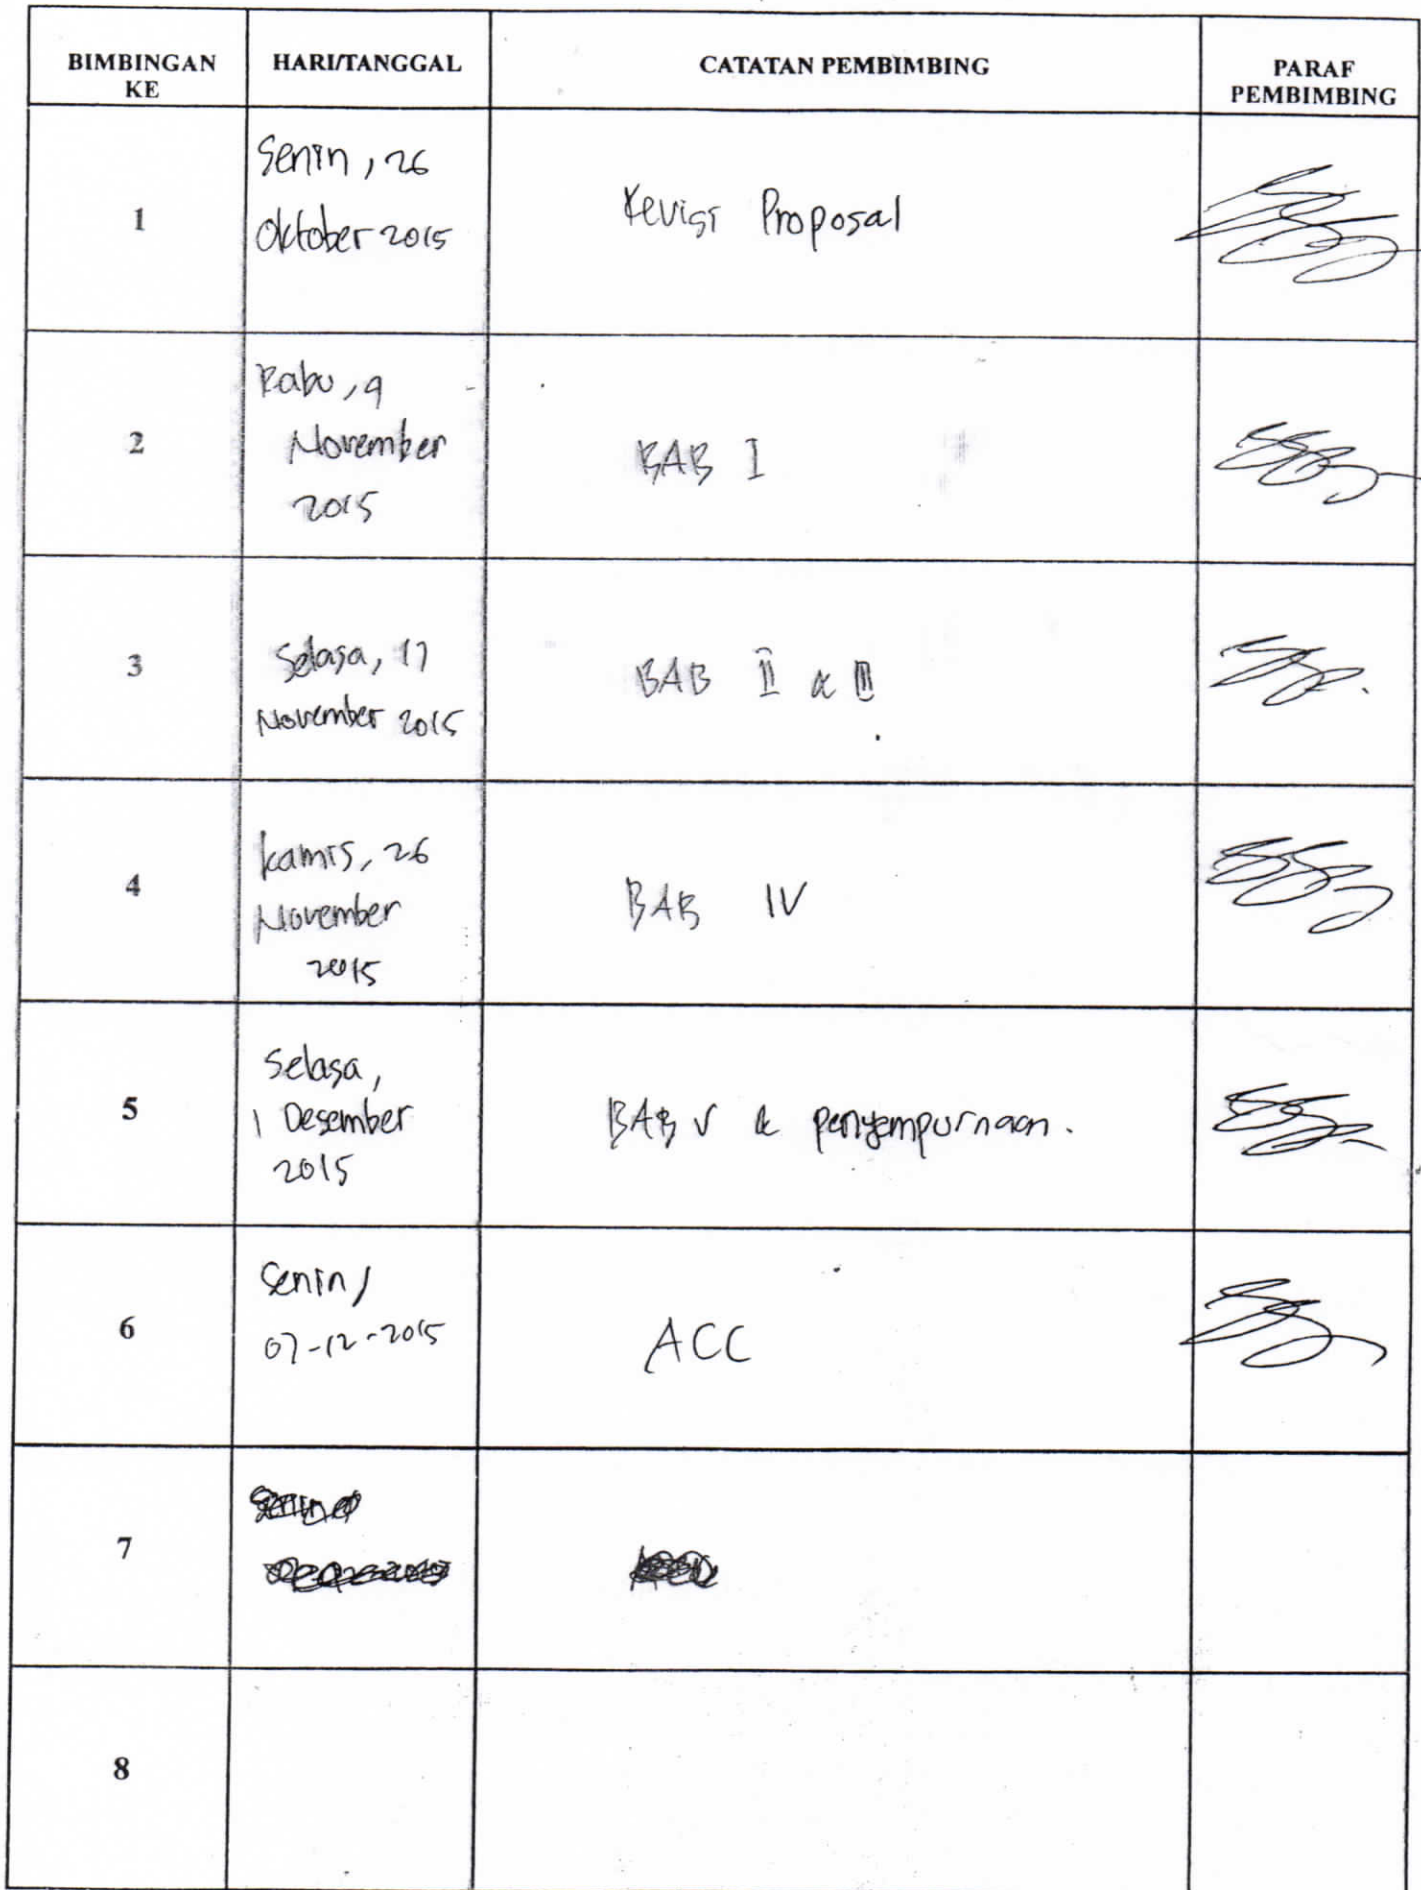 BIMBINGAN KE
HARI/TANGGAL
CATATAN PEMBIMBING
PARAF PEMBIMBING
1
Senin, 26
Oktober 2015
Revisi Proposal
2
Rabu, 9
November
2015
BAB I
3
Selasa, 17
November 2015
BAB II & III
4
Kamis, 26
November
2015
BAB IV
5
Selasa,
1 Desember
2015
BAB V & penyempurnaan.
6
Senin,
07-12-2015
ACC
7
8